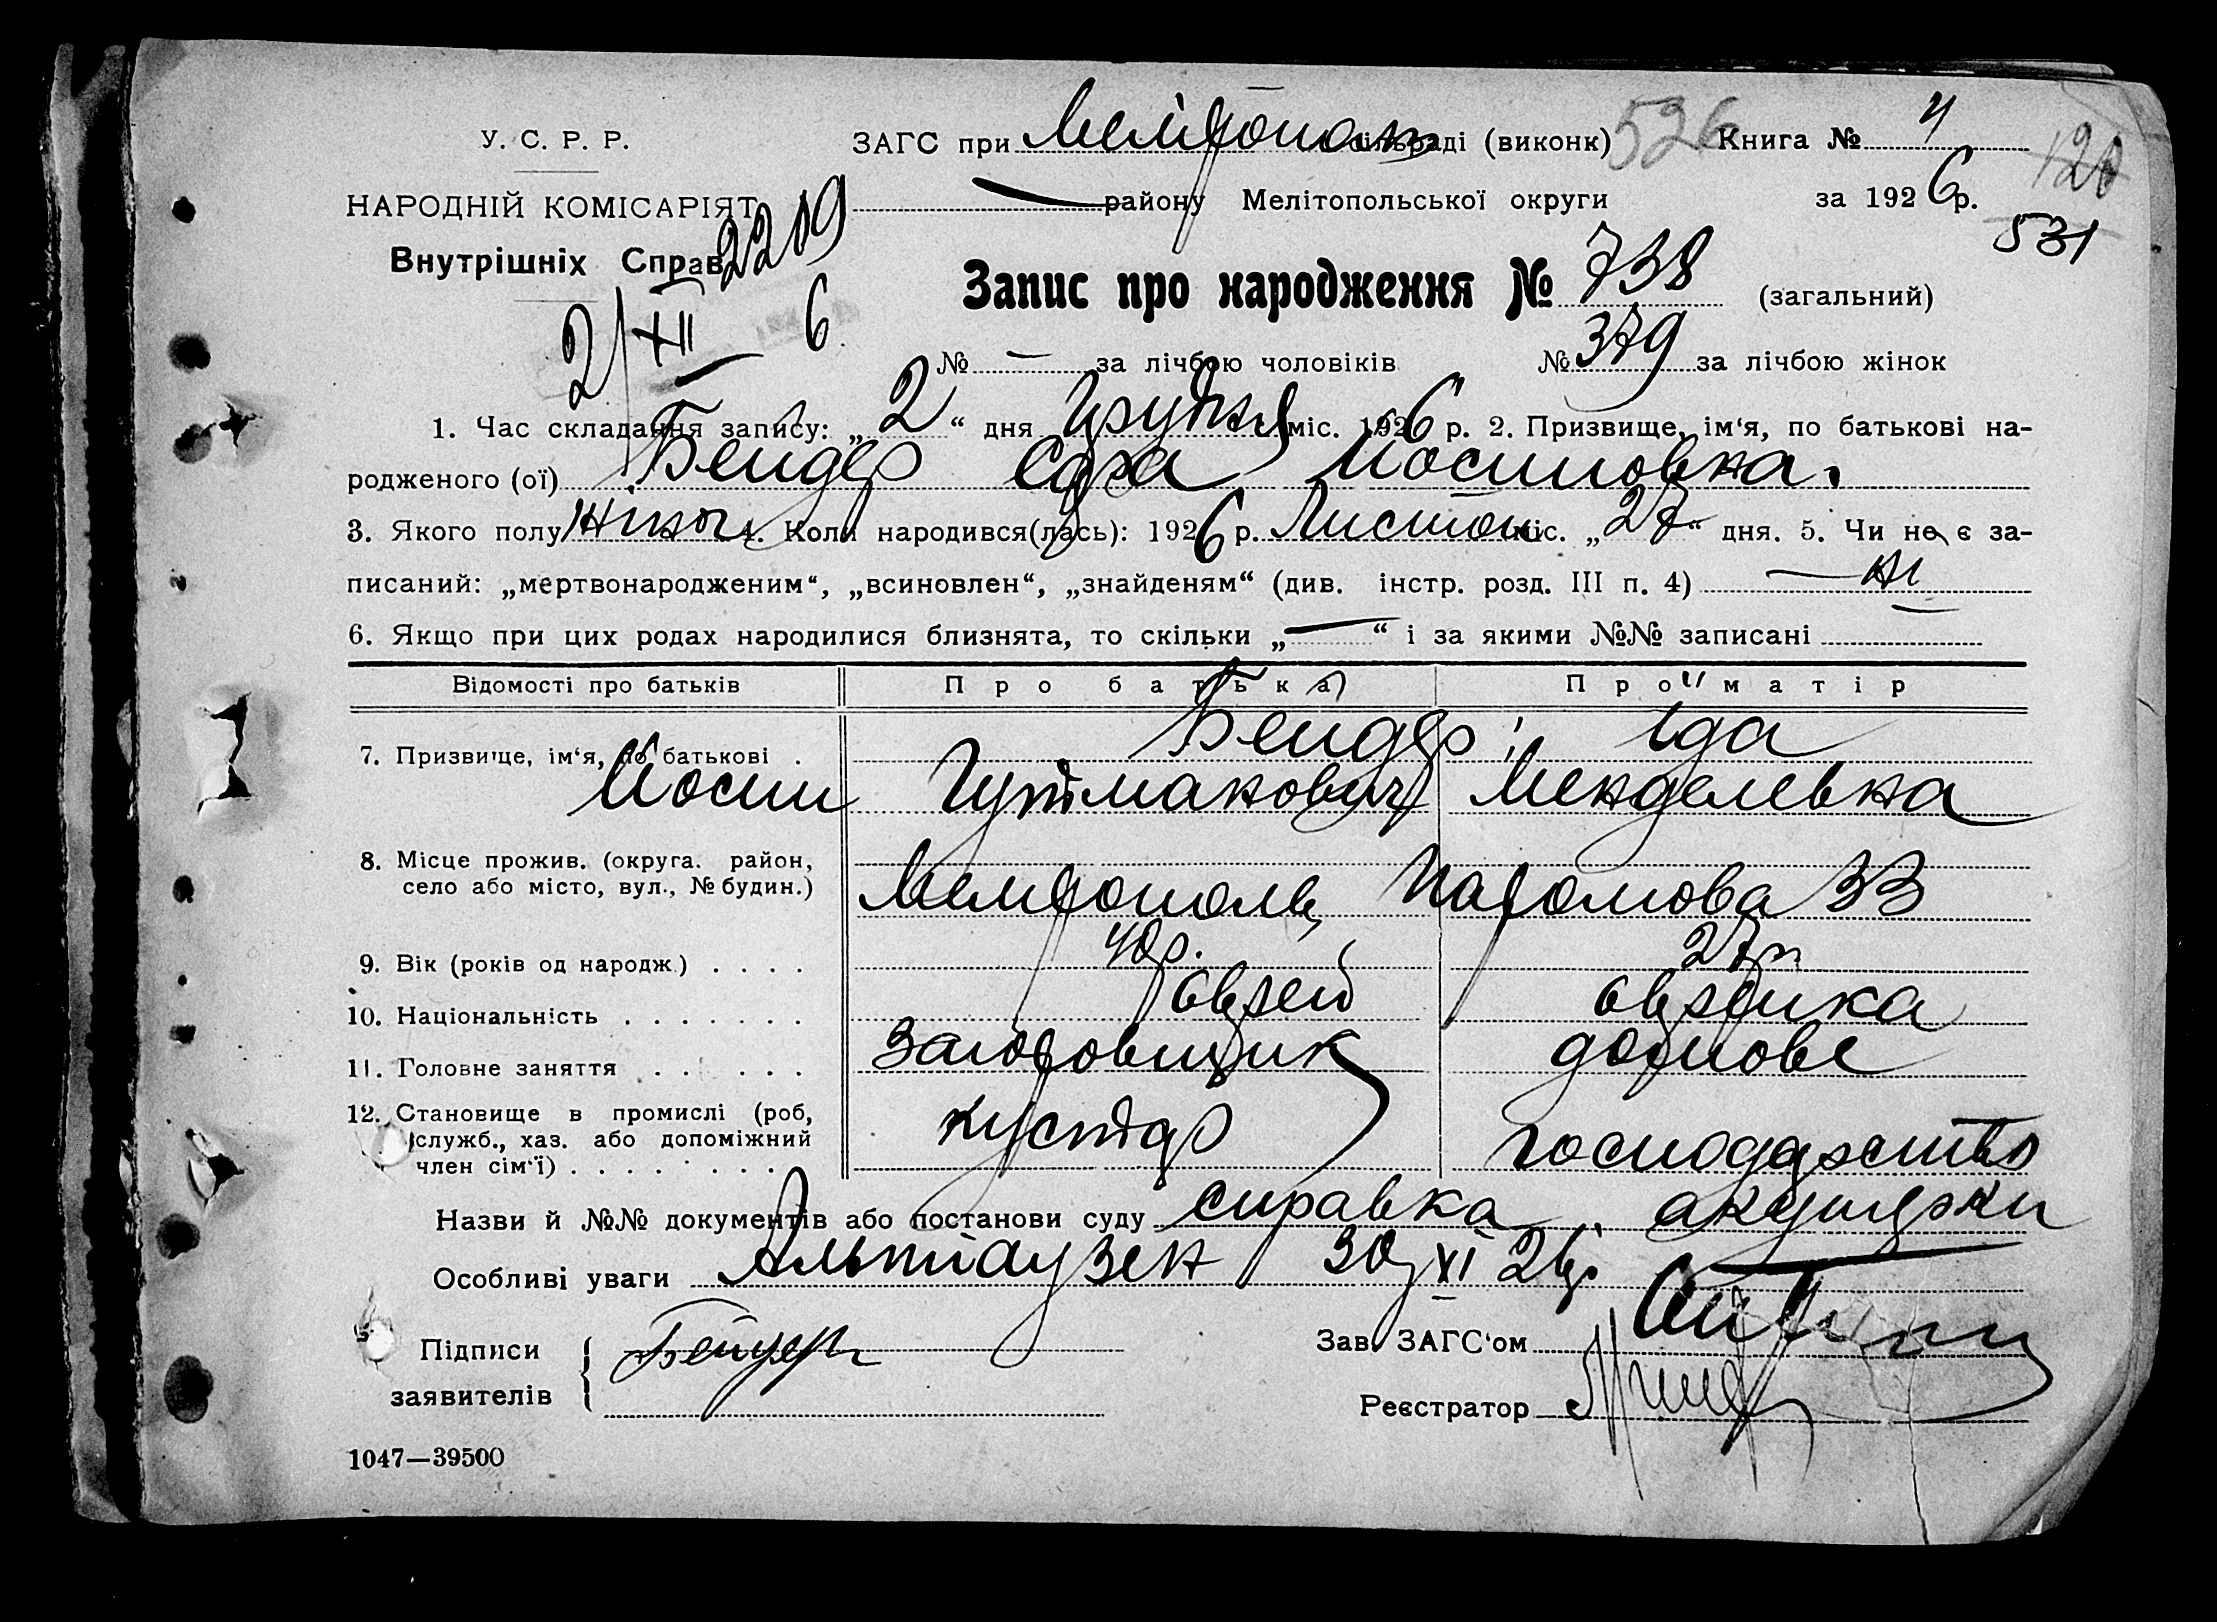 У. С. Р. Р.
ЗАГС при Меліт. сільраді (виконк) 526 Книга № 4
120
НАРОДНІЙ КОМІСАРІЯТ
— району Мелітопольської округи за 1926 р.
531
Внутрішніх Справ 2209
Запис про народження № 738 (загальний)
2/XII 6
№ — за лічбою чоловіків № 379 за лічбою жінок
1. Час складання запису: „2“ дня Грудня міс. 1926 р. 2. Призвище, ім‘я, по батькові на-
родженого (ої) Бендер Сара Иосиповна.
3. Якого полу жіноч. 4. Коли народився(лась): 1926 р. Листоп міс. „27“ дня. 5. Чи не є за-
писаний: „мертвонародженим“, „всиновлен“, „знайденям“ (див. інстр. розд. III п. 4) — ні
6. Якщо при цих родах народилися близнята, то скільки „—“ і за якими №№ записані
Відомості про батьків Про батька Про матір
Бендер Іда
7. Призвище, ім‘я, по батькові .
Иосип Гутманович Менделевна
8. Місце прожив. (округа. район,
село або місто, вул., № будин.)
Мелітополь, 33
9. Вік (років од народж.) . . . . 40 р. 27 р.
10. Національність . . . . . . . єврей єврейка
11. Головне заняття . . . . . . заготовщик домове
12. Становище в промислі (роб,
служб., хаз. або допоміжний
член сім‘ї) . . . . . . . . кустар господарство
Назви й №№ документів або постанови суду справка акушерки
Особливі уваги Альтгаузен 30/XI 26 р.
Підписи
заявителів
Бендер
Зав. ЗАГС‘ом
Реєстратор
1047—39500